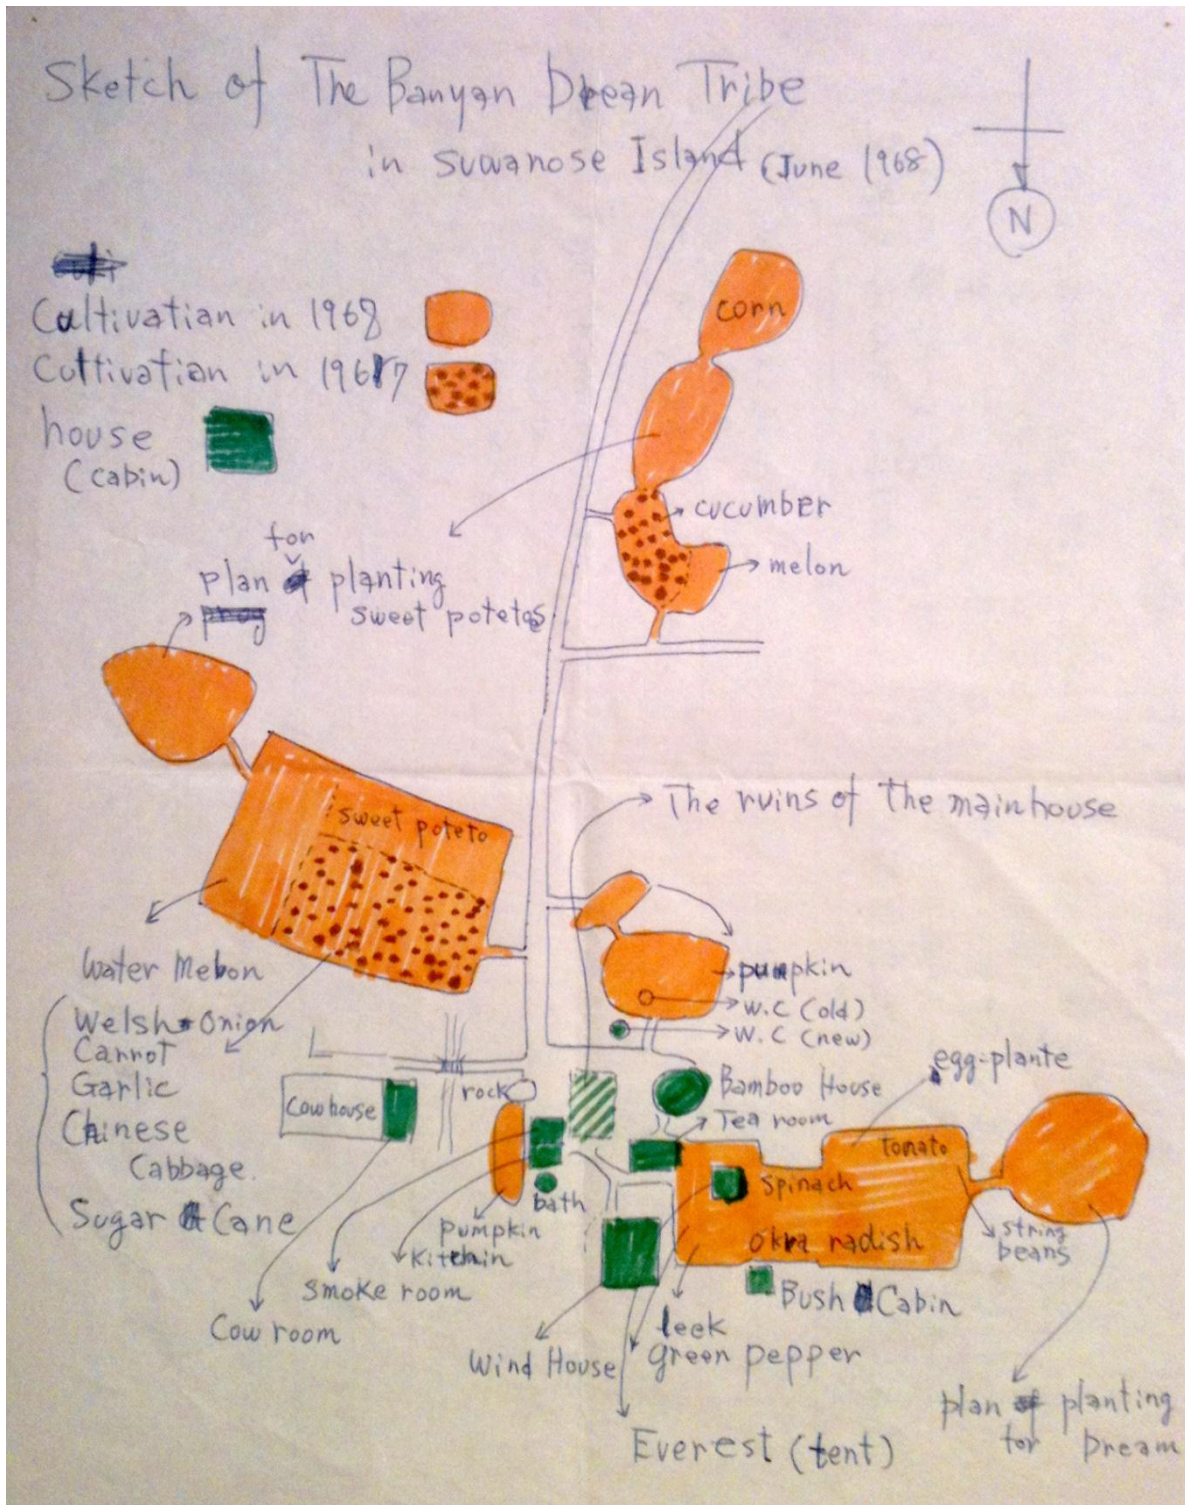 Sketch of The Banyan Dream Tribe
in suwanose Island (June 1968)
N
Cultivatian in 1968
Cultivatian in 1967
house
(cabin)
corn
cucumber
melon
for
plan planting
sweet potetos
sweet poteto
The ruins of the mainhouse
Water Melon
pumpkin
W.C (old)
W.C (new)
Welsh Onion
Carrot
Garlic
Chinese
Cabbage.
Sugar Cane
Cowhouse
rock
Bamboo House
Tea room
egg-plante
tomato
spinach
okra radish
string
beans
bath
pumpkin
kitchin
smoke room
Cow room
Bush Cabin
leek
green pepper
Wind House
Everest (tent)
plan planting
for Dream